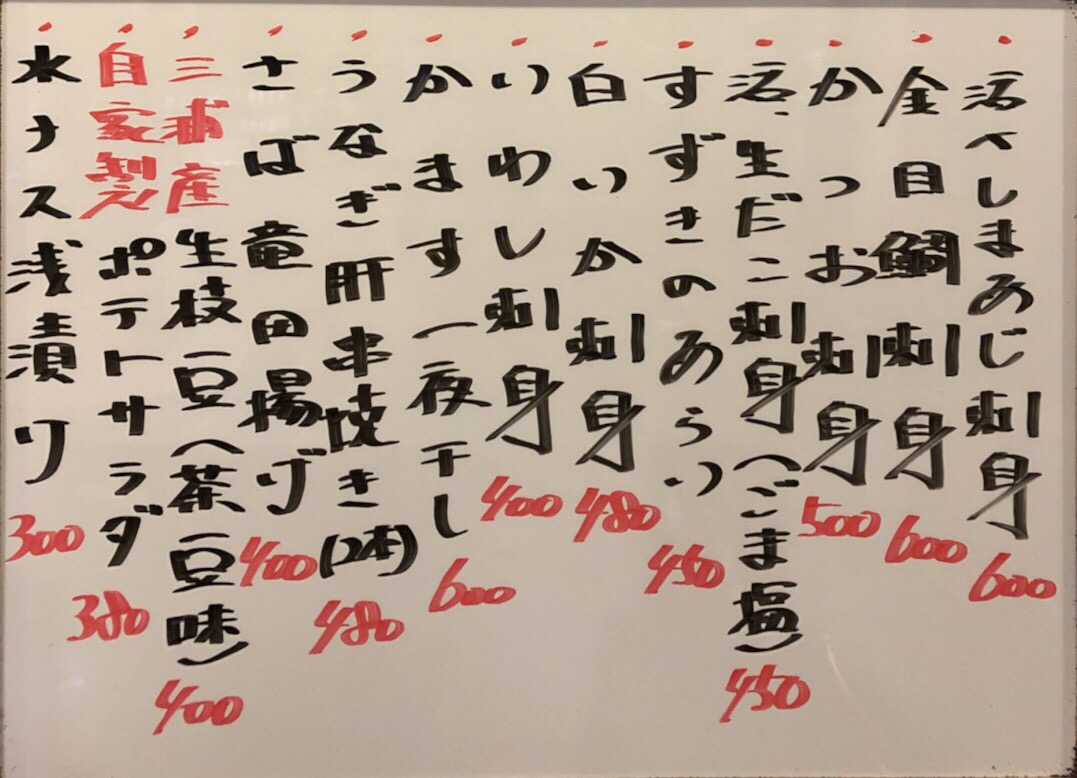 活〆しまあじ刺身 600
金目鯛刺身 600
かつお刺身 500
活〆生だこ刺身(ごま塩) 450
すずきのあらい 450
白いか刺身 480
いわし刺身 400
かます一夜干し 600
うなぎ肝串焼き(2本) 480
さば竜田揚げ 400
三浦産生枝豆(茶豆味) 400
自家製ポテトサラダ 380
水ナス浅漬り 300